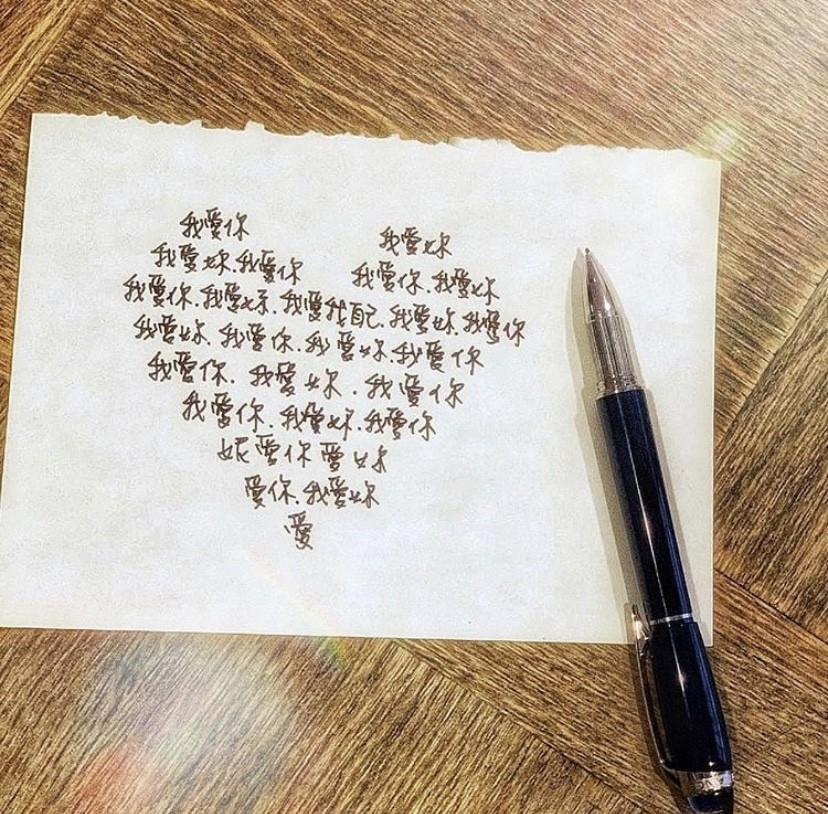 我愛你 我愛妳
我愛妳.我愛你 我愛你.我愛妳
我愛你.我愛妳.我愛我自己.我愛妳.我愛你
我愛妳.我愛你.我愛妳.我愛你
我愛你.我愛妳.我愛你
我愛你.我愛妳.我愛你
妮愛你愛妳
愛你.我愛妳
愛